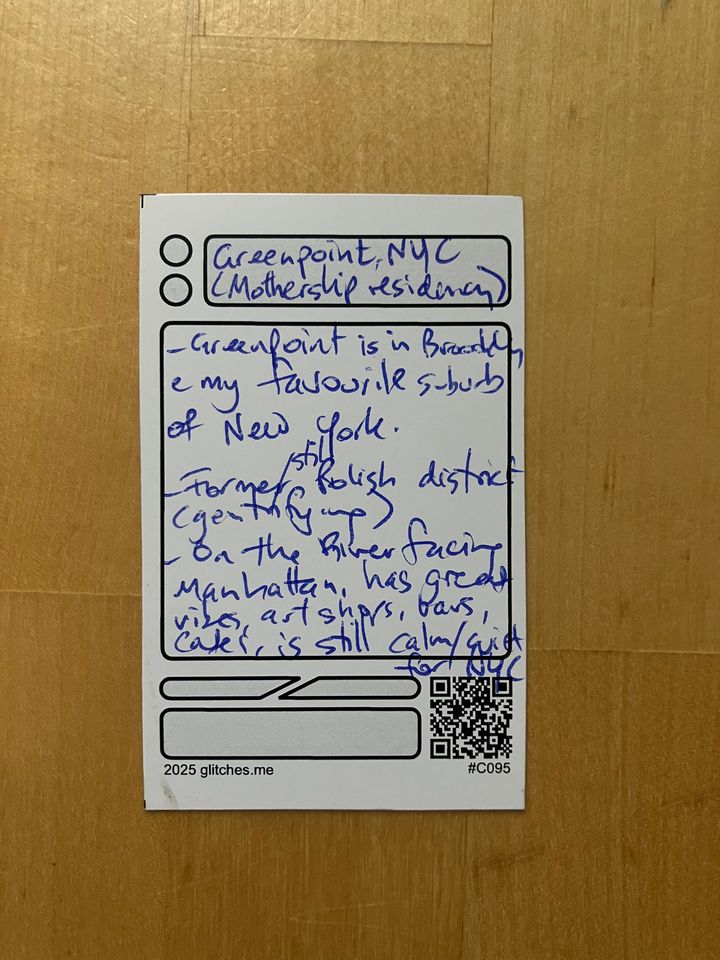 Greenpoint, NYC
(Mothership residency)
- Greenpoint is in Brooklyn
& my favourite suburb
of New York.
- Former/still Polish district
(gentrifying)
- On the River facing
Manhattan, has great
vibes, art shops, bars,
cafes, is still calm/quiet
for NYC
2025 glitches.me
#C095